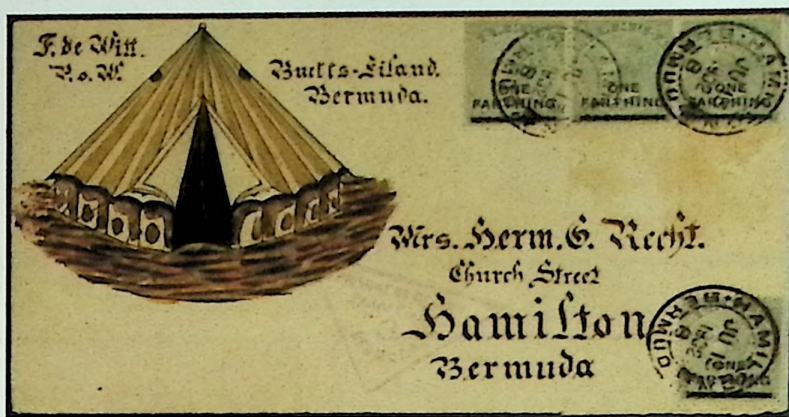 F. de Witt.
P.o.W.
Burtts-Eiland.
Bermuda.
ONE
FARTHING
ONE
FARTHING
ONE
FARTHING
Mrs. Herm. G. Recht.
Church Street
Hamilton
Bermuda
HAMILTON BERMUDA
JU
ONE
FARTHING